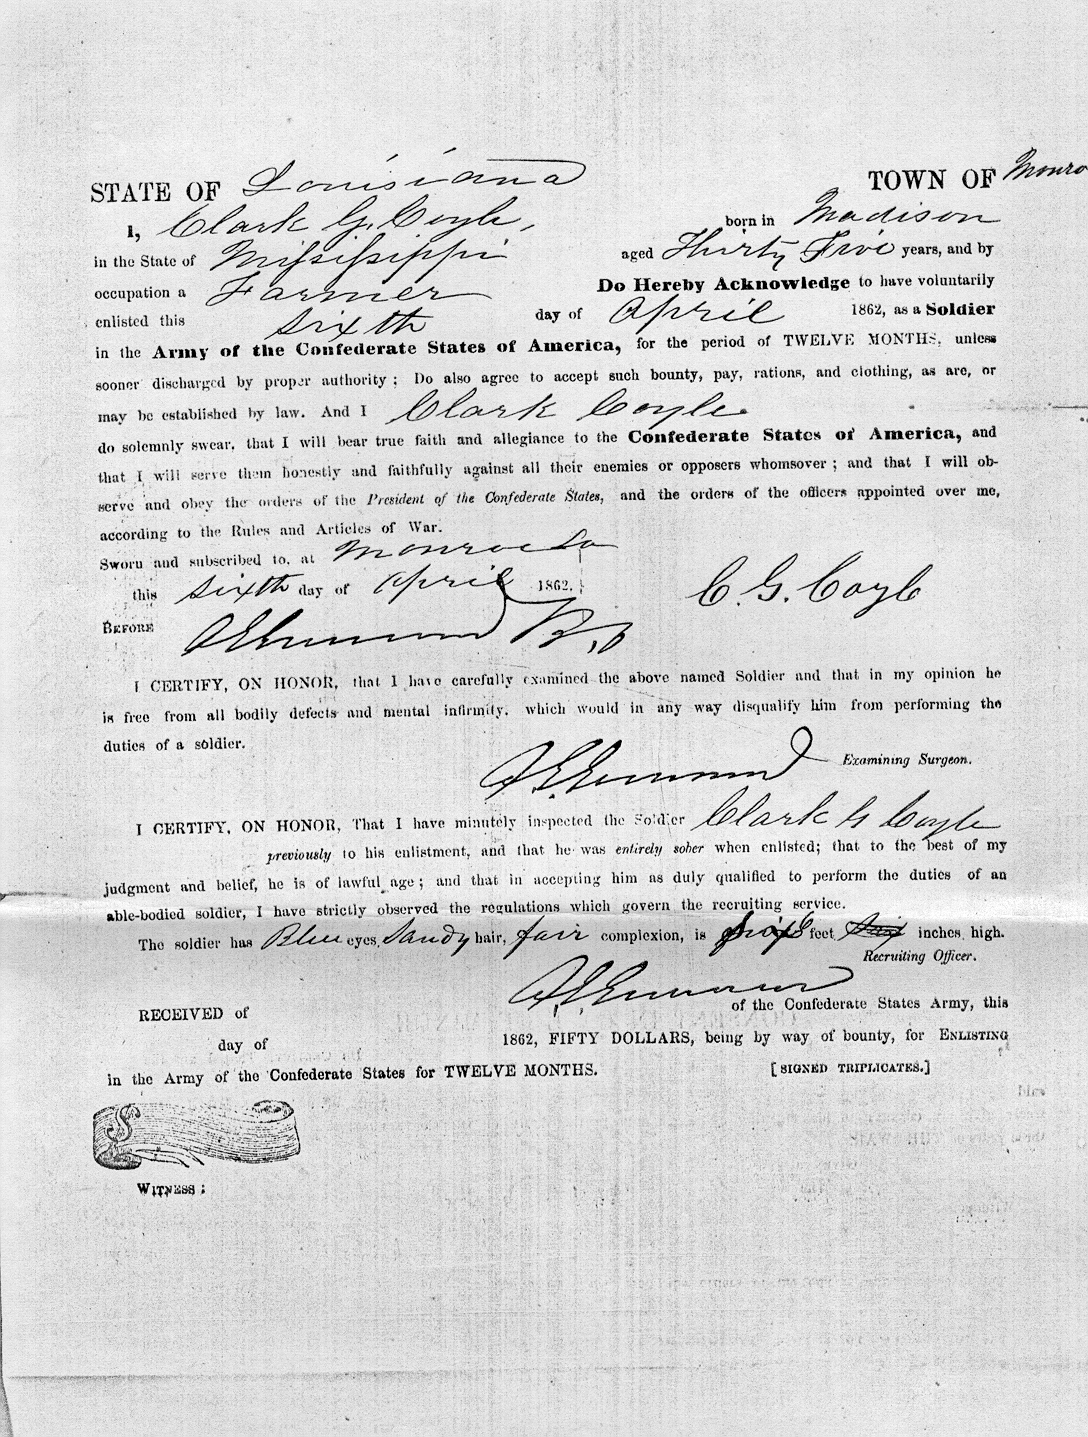 STATE OF Louisiana TOWN OF Monro
I, Clark G. Coyle, born in Madison
in the State of Mississippi aged Thirty Five years, and by
occupation a Farmer Do Hereby Acknowledge to have voluntarily
enlisted this sixth day of April 1862, as a Soldier
in the Army of the Confederate States of America, for the period of TWELVE MONTHS, unless
sooner discharged by proper authority; Do also agree to accept such bounty, pay, rations, and clothing, as are, or
may be established by law. And I Clark Coyle
do solemnly swear, that I will bear true faith and allegiance to the Confederate States of America, and
that I will serve them honestly and faithfully against all their enemies or opposers whomsover; and that I will ob-
serve and obey the orders of the President of the Confederate States, and the orders of the officers appointed over me,
according to the Rules and Articles of War.
Sworn and subscribed to, at Monroe La
this sixth day of April 1862. C. G. Coyle
BEFORE
I CERTIFY, ON HONOR, that I have carefully examined the above named Soldier and that in my opinion he
is free from all bodily defects and mental infirmity, which would in any way disqualify him from performing the
duties of a soldier.
Examining Surgeon.
I CERTIFY, ON HONOR, That I have minutely inspected the Soldier Clark G Coyle
previously to his enlistment, and that he was entirely sober when enlisted; that to the best of my
judgment and belief, he is of lawful age; and that in accepting him as duly qualified to perform the duties of an
able-bodied soldier, I have strictly observed the regulations which govern the recruiting service.
The soldier has Blue eyes, Sandy hair, fair complexion, is six feet inches high.
Recruiting Officer.
RECEIVED of of the Confederate States Army, this
day of 1862, FIFTY DOLLARS, being by way of bounty, for ENLISTING
in the Army of the Confederate States for TWELVE MONTHS. [SIGNED TRIPLICATES.]
$
WITNESS: